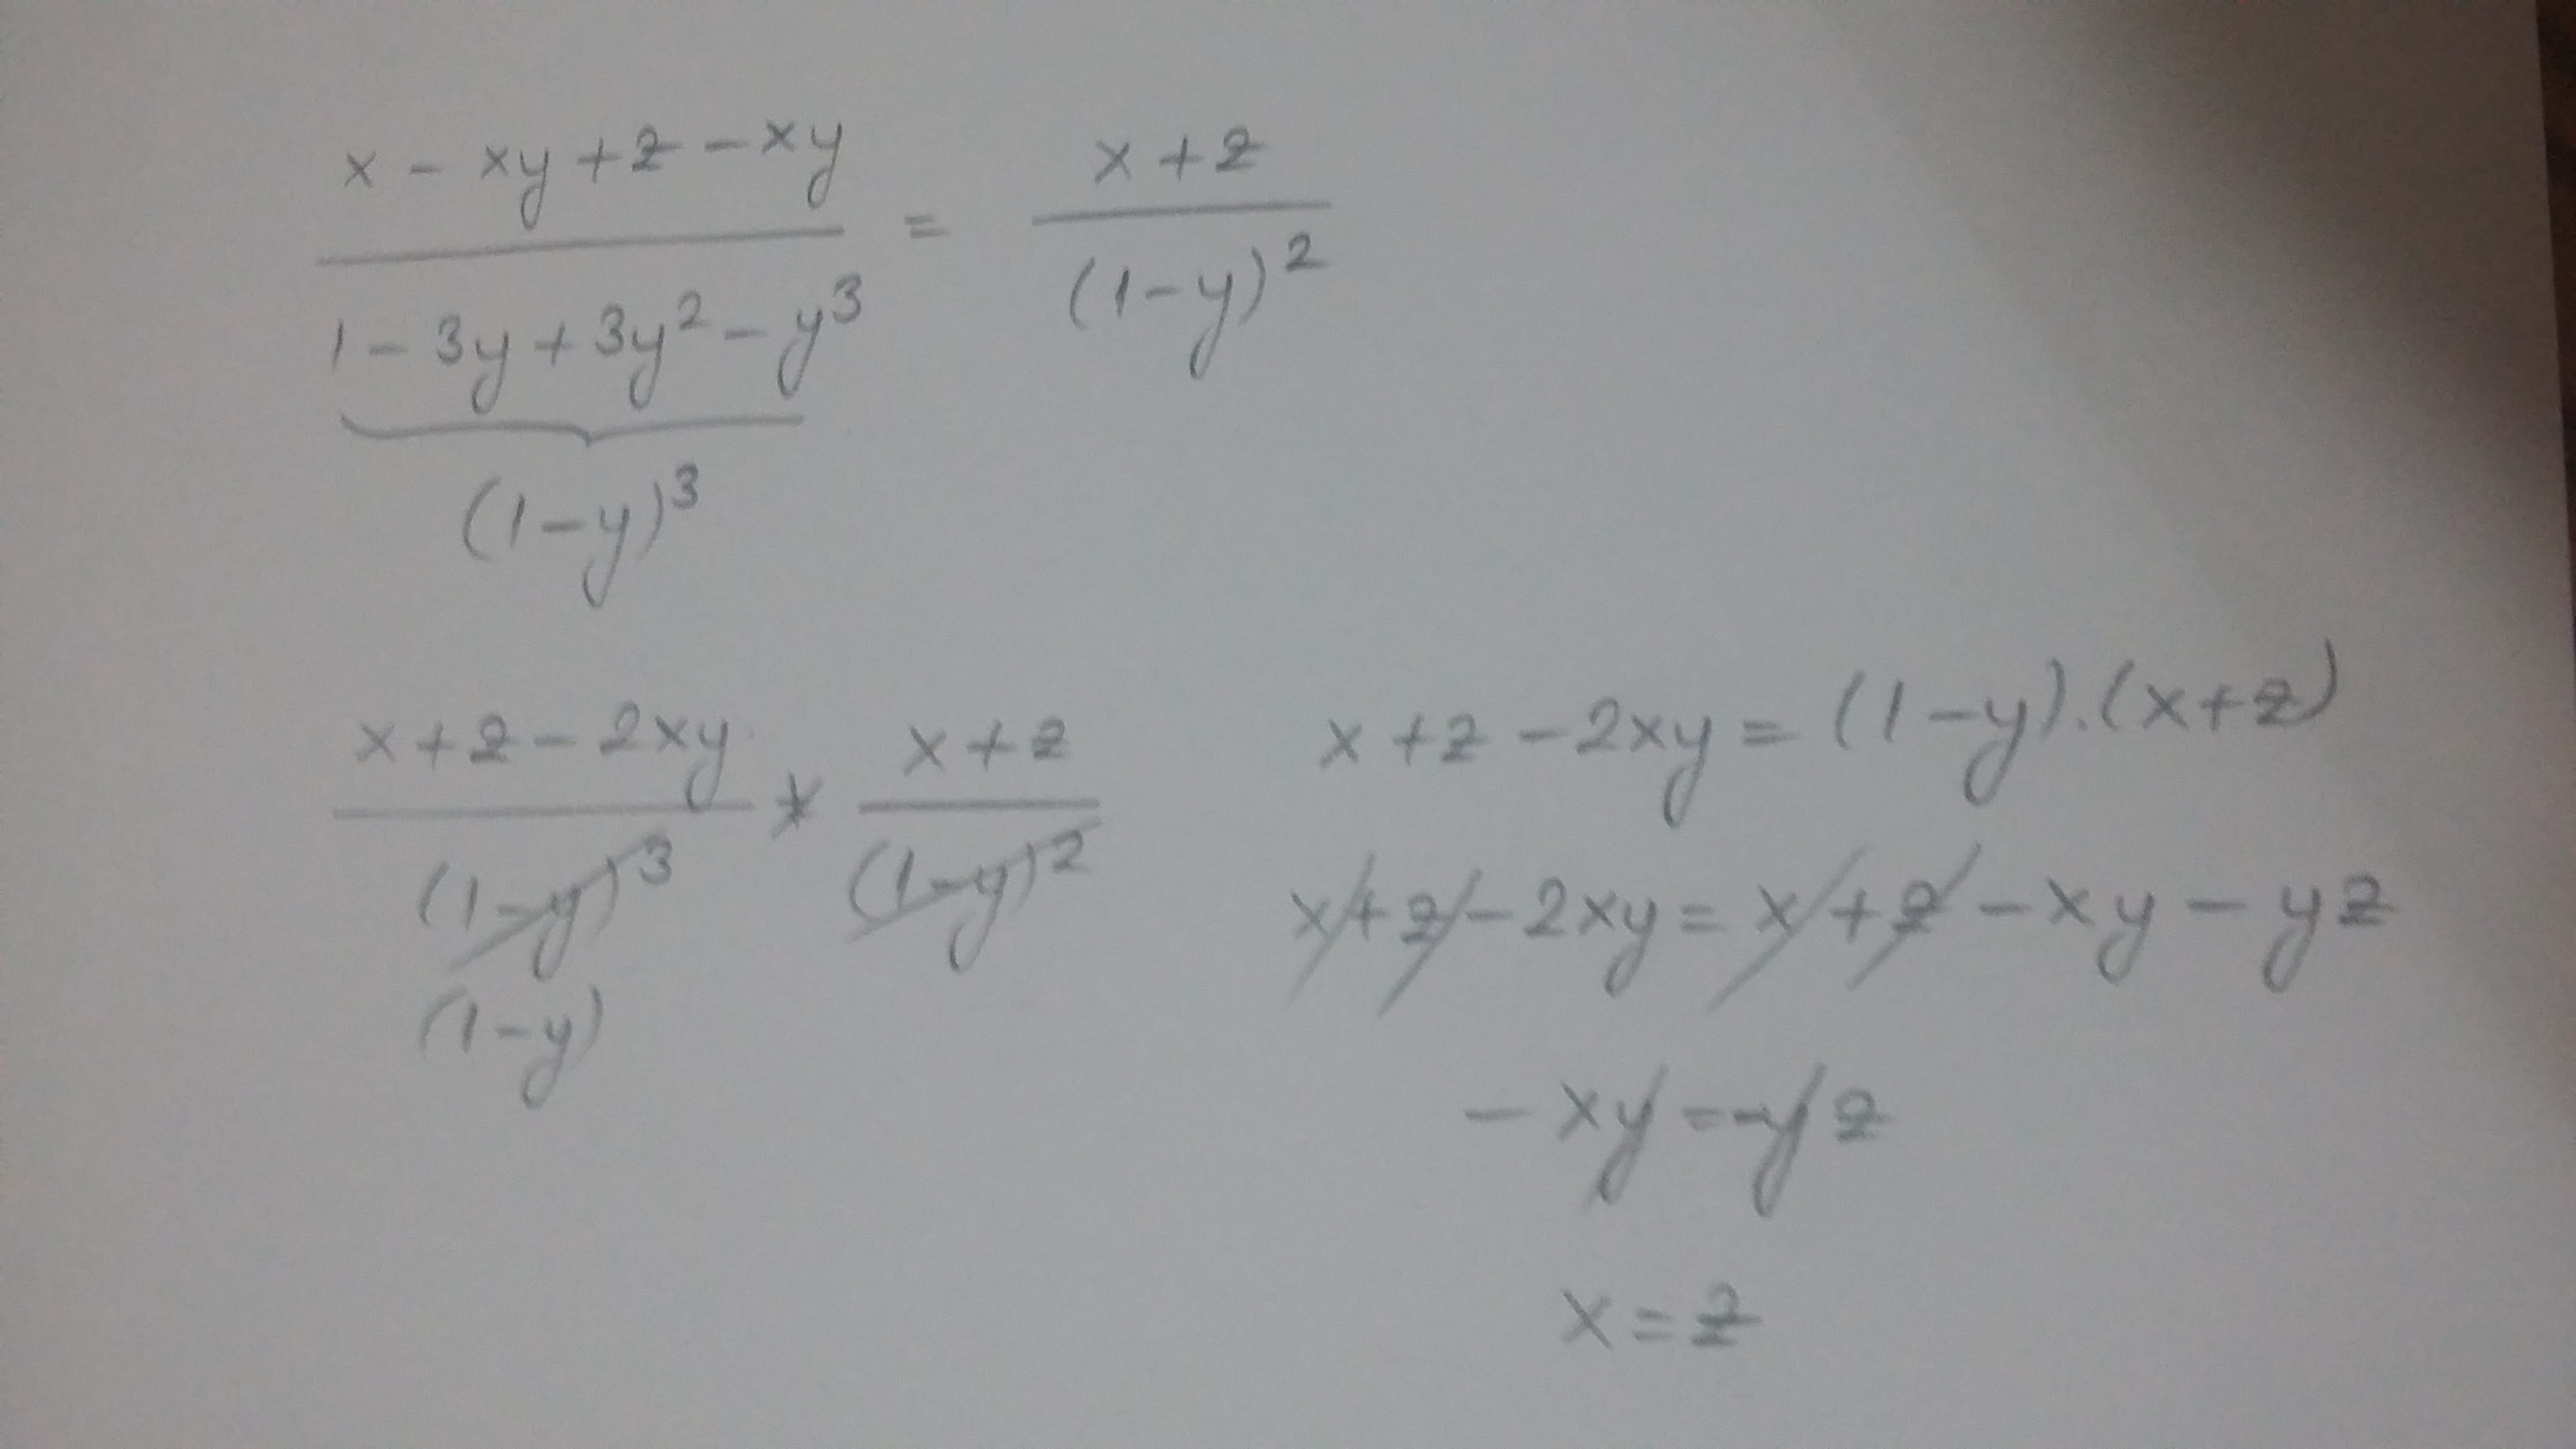 x - xy + z - xy / 1 - 3y + 3y² - y³ = x + z / (1-y)²
(1-y)³
x + z - 2xy / (1-y)³ * x + z / (1-y)²
(1-y)
x + z - 2xy = (1-y).(x+z)
x + z - 2xy = x + z - xy - yz
- xy = -yz
x = z